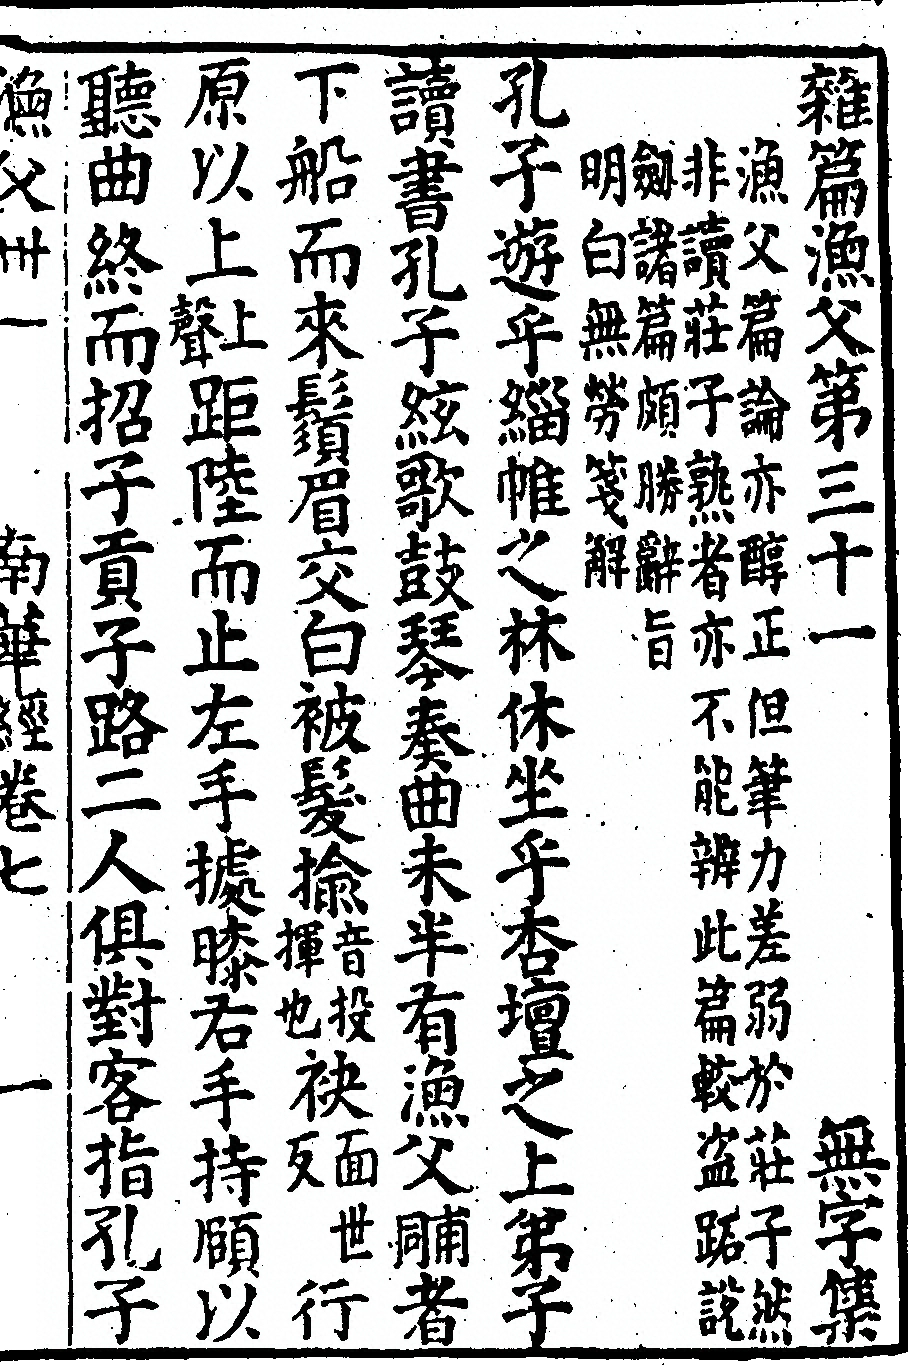 雜篇漁父第三十一　無字集
漁父篇論亦醇正但筆力差弱於莊子然
非讀莊子熟者亦不能辨此篇較盜跖說
劒諸篇頗勝辭旨
明白無勞箋解
孔子遊乎緇帷之林休坐乎杏壇之上弟子
讀書孔子絃歌鼓琴奏曲未半有漁父甫同者
下船而來鬚眉交白被髮揄音投揮也袂面世反行
原以上上聲距陸而止左手據膝右手持頤以
聽曲終而招子貢子路二人俱對客指孔子
漁父卅一　南華經卷七　一